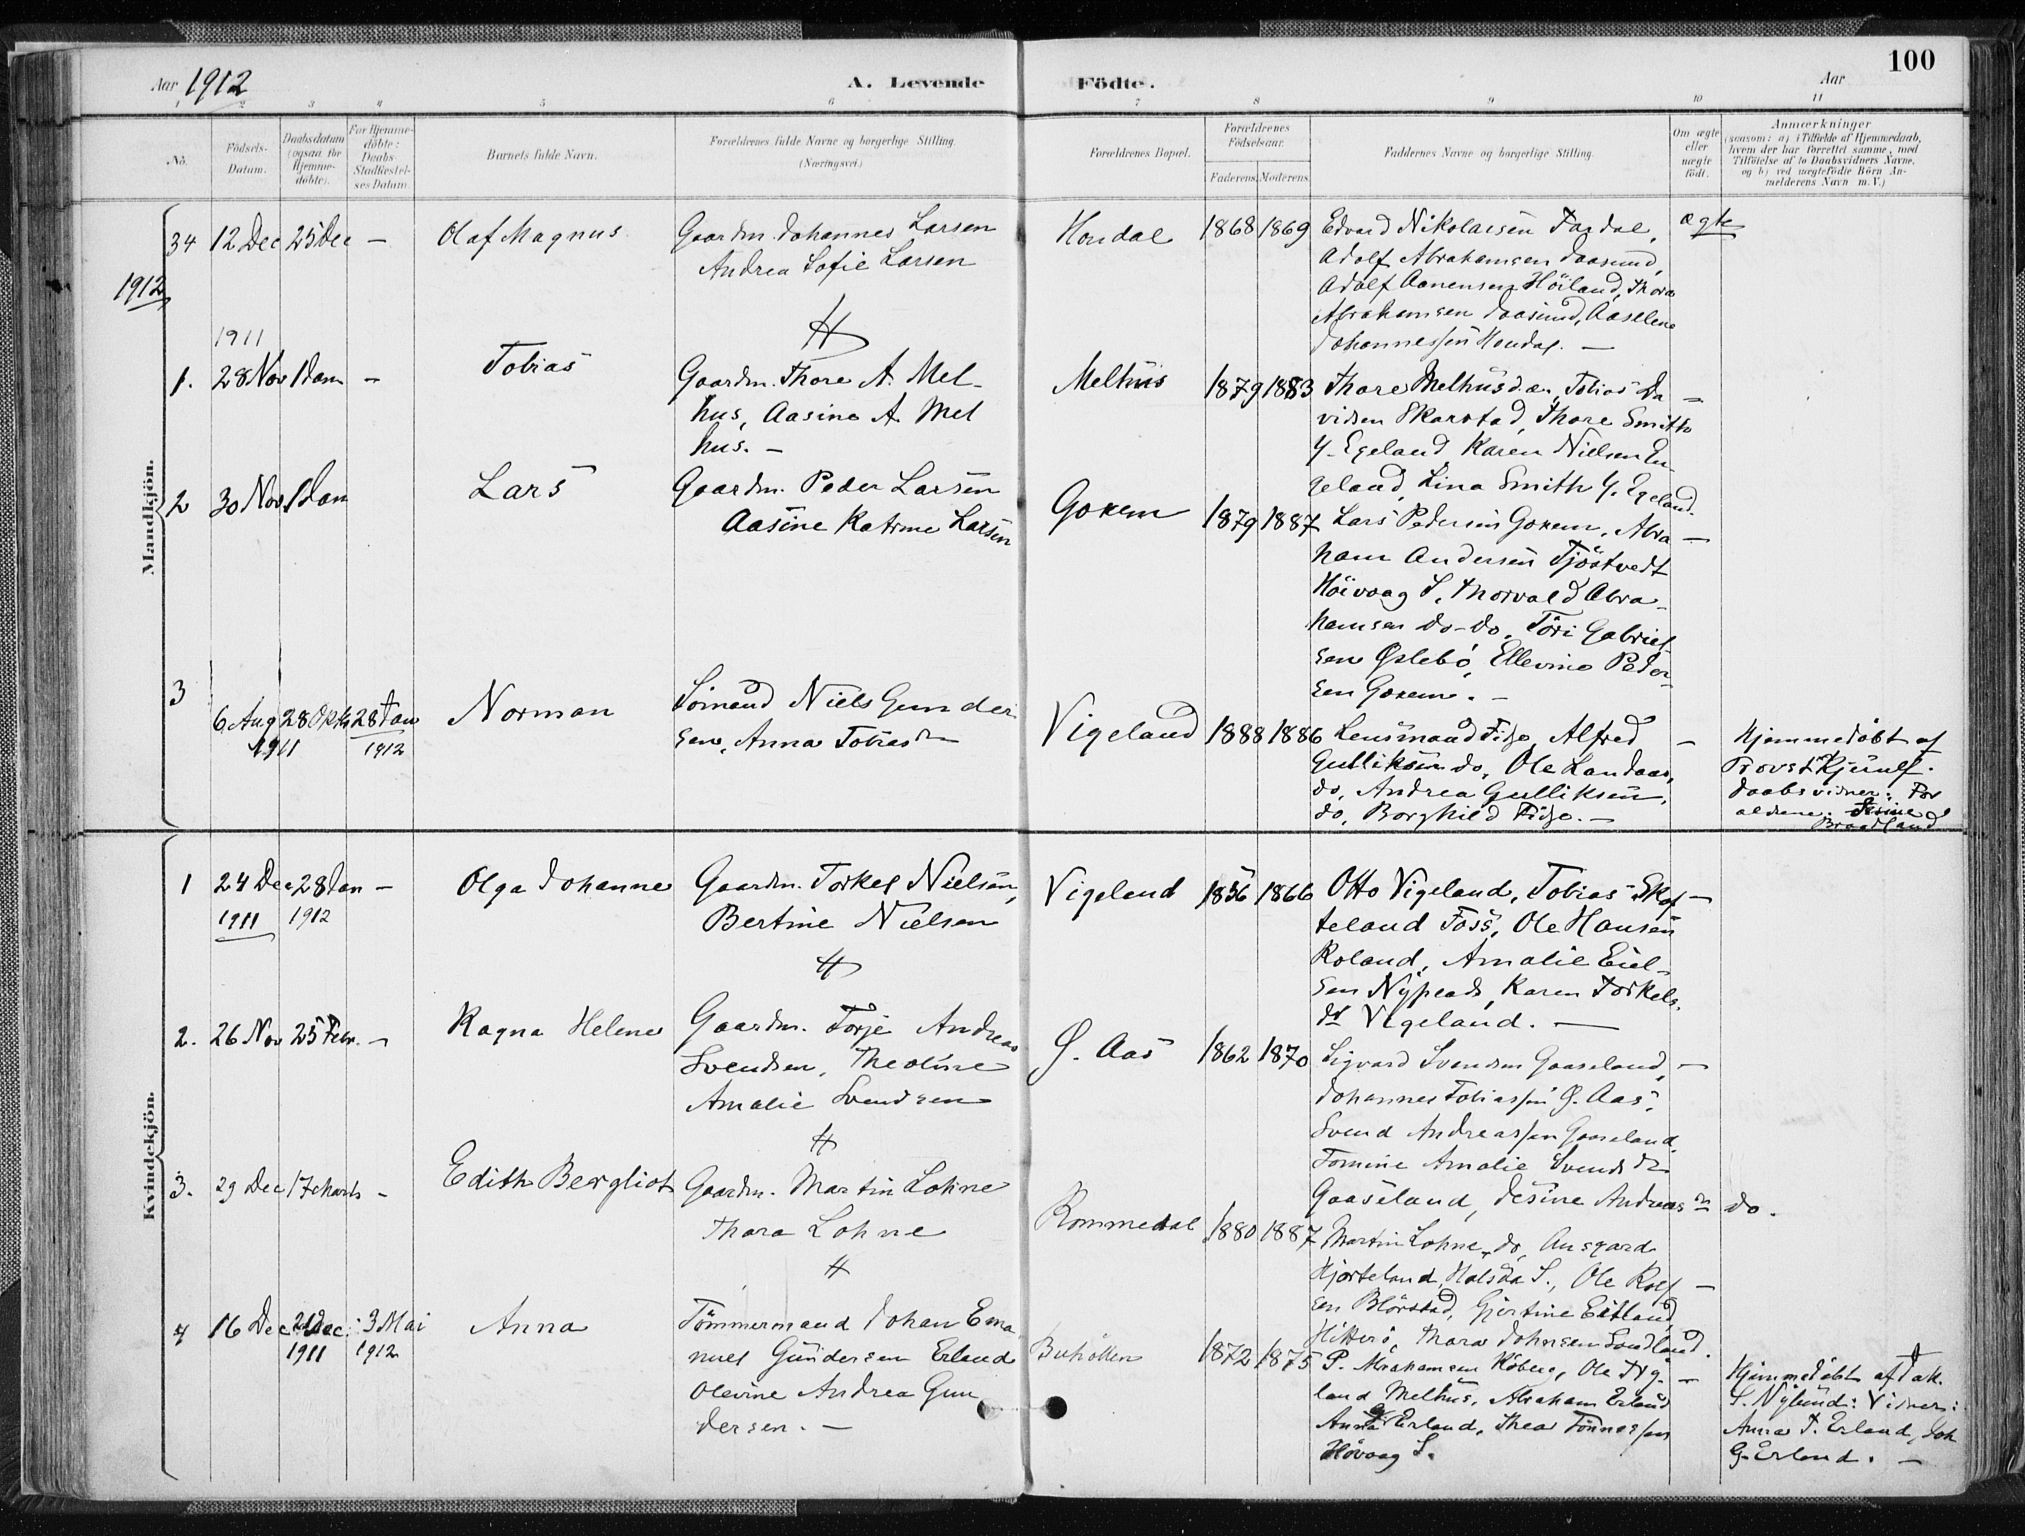 100
Aar 1912
A. Levende Födte.
Aar
1 2 3 4 5 6 7 8 9 10 11
No.
Födsels-
Datum.
Daabsdatum
(ogsaa for
Hjemme-
döbte).
For Hjemme-
döbte:
Daabs-
Stadfæstel-
ses Datum.
Barnets fulde Navn.
Forældrenes fulde Navne og borgerlige Stilling.
(Næringsvei.)
Forældrenes Bopæl.
Forældrenes
Födselsaar.
Faderens. Moderens.
Faddernes Navne og borgerlige Stilling.
Om ægte
eller
uægte
födt.
Anmærkninger
(saasom: a) i Tilfælde af Hjemmedaab,
hvem der har forrettet samme, med
Tilföielse af to Daabsvidners Navne,
og b) ved uægtefödte Börn An-
melderens Navn m. V.)
Mandkjön.
34 12 Dec 25 Dec — Olaf Magnus
Gaardm. Johannes Larsen
Andrea Sofie Larsen
Hondal 1868 1869
Edvard Nikolaisen Fardal,
Adolf Abrahamsen Daasund,
Adolf Aanensen Höiland, Thora
Abrahamsen Daasund, Aaselene
Johannessen Hondal. —
ægte
1912
1911
1. 28 Nov 1 Jan — Tobias
Gaardm. Thore A. Mel-
hus, Aasine A. Mel
hus. —
Melhus 1879 1883
Thore Melhus d.æ., Tobias Da
vidsen Skarstad, Thore Smith
Y. Egeland Karen Nielsen En-
geland, Lina Smith Y. Egeland.
—
2 30 Nov 1 Jan Lars
Gaardm. Peder Larsen
Aasine Katrine Larsen
Goxem 1879 1887
Lars Pedersen Goxem, Abra
ham Andersen Tjöstvedt
Höivaag S, Thorvald Abra-
hamsen do-do, Töri Gabriel
sen Øslebö, Ellevine Peder-
sen Goxem. —
—
3 6 Aug 28 Oktb 28 Jan Norman
1911 1912
Sömand Niels Gunder
sen, Anna Tobiasdtr
Vigeland 1888 1886
Lensmand Fidje, Alfred
Gulliksen do, Ole Landaas,
do, Andrea Gulliksen,
do, Borghild Fidje. —
—
Hjemmedöbt af
Provst Kjunl.
Daabsvidner: For
ældrene.
Braadland
Kvindekjön.
1 24 Dec 28 Jan — Olga Johanne
1911 1912
Gaardm. Torkel Nielsen,
Bertine Nielsen
Vigeland 1856 1866
Otto Vigeland, Tobias Skof
teland Foss, Ole Hansen
Roland, Amalie Eiel-
sen Nyplads, Karen Torkels-
dt Vigeland. —
—
2. 26 Nov 25 Febr. — Ragna Helene
Gaardm. Torje Andreas
Svendsen, Theoline
Amalie Svendsen
Ø. Aas 1862 1870
Sigvard Svendsen Gaaseland,
Johannes Tobiassen Ø. Aas,
Svend Andreassen Gaaseland,
Tomine Amalie Svendsdtr
Gaaseland, Jesine Andreasdtr do.
—
3. 29 Dec 17 Marts — Edith Bergliot
Gaardm. Martin Lohne
Thora Lohne
Rommedal 1880 1887
Martin Lohne, do, Ansgard
Hjorteland, Halsaa S., Ole Rolf
sen Blörstad, Gjertine Eitland,
Hitterö, Thora Johnsen Sandland.
—
4 16 Dec 21 Dec 3 Mai Anna
1911 1912
Tömmermand Johan Ema
nuel Gundersen Erland
Olevine Andrea Gun
dersen. —
Buhölen 1872 1875
P. Abrahamsen Köberg, Ole Nyg-
land Melhus, Abraham Erland
Anna G Erland, Thea Tönnessen
Hövaag S.
—
Hjemmedöbt af Jak.
S. Nylund: Vidner:
Anna T. Erland, Joh
G. Erland. —